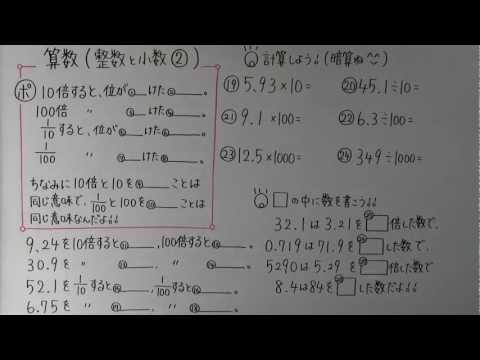 算数(整数と小数②)
ポ 10倍すると、位が__けた__。
100倍 〃 __けた__。
1/10すると、位が__けた__。
1/100 〃 __けた__。
ちなみに10倍と10を__ことは
同じ意味で、1/100と100を__ことは
同じ意味なんだよ!!
9.24を10倍すると__、100倍すると__。
30.9を 〃 __、 〃 __。
52.1を1/10すると__、1/100すると__。
6.75を 〃 __、 〃 __。
計算しよう!(暗算ね^^)
⑲5.93×10=
⑳45.1÷10=
㉑9.1×100=
㉒6.3÷100=
㉓12.5×1000=
㉔349÷1000=
□の中に数を書こう!!
32.1は3.21を□倍した数で、
0.719は71.9を□した数で、
5290は5.29を□倍した数で
8.4は84を□した数だよ!!